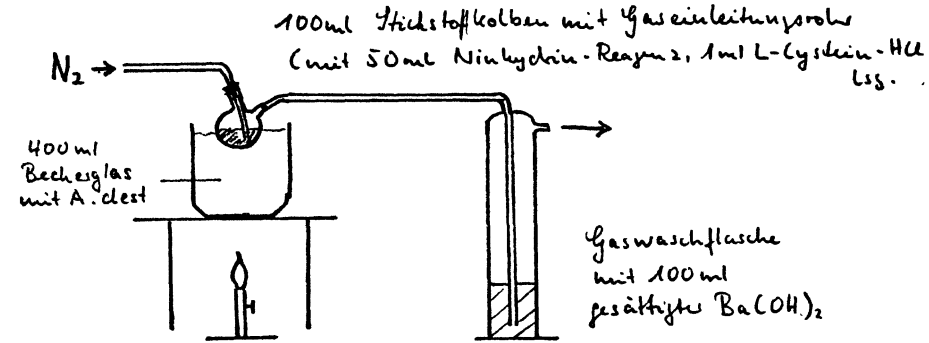 100ml Stickstoffkolben mit Gaseinleitungsrohr
(mit 50ml Ninhydrin-Reagenz, 1ml L-Cystein-HCl
Lsg.
N₂
400ml
Becherglas
mit A. dest
Gaswaschflasche
mit 100ml
gesättigter Ba(OH)₂